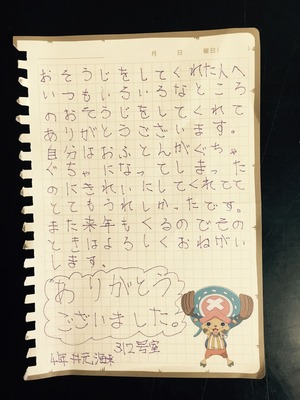 月 日 曜日
おそうじをしてくれた人へ
いつもいろなところ
のおそうじをしてくれて
ありがとうございます。
自分はおふとんがぐちゃ
ぐちゃになってしまった
のにきれいにしてくれてて
とてもうれしかったです。
また来年もくるのでその
ときはよろしくおねがい
します。
ありがとう
ございました。
312号室
4年 井元